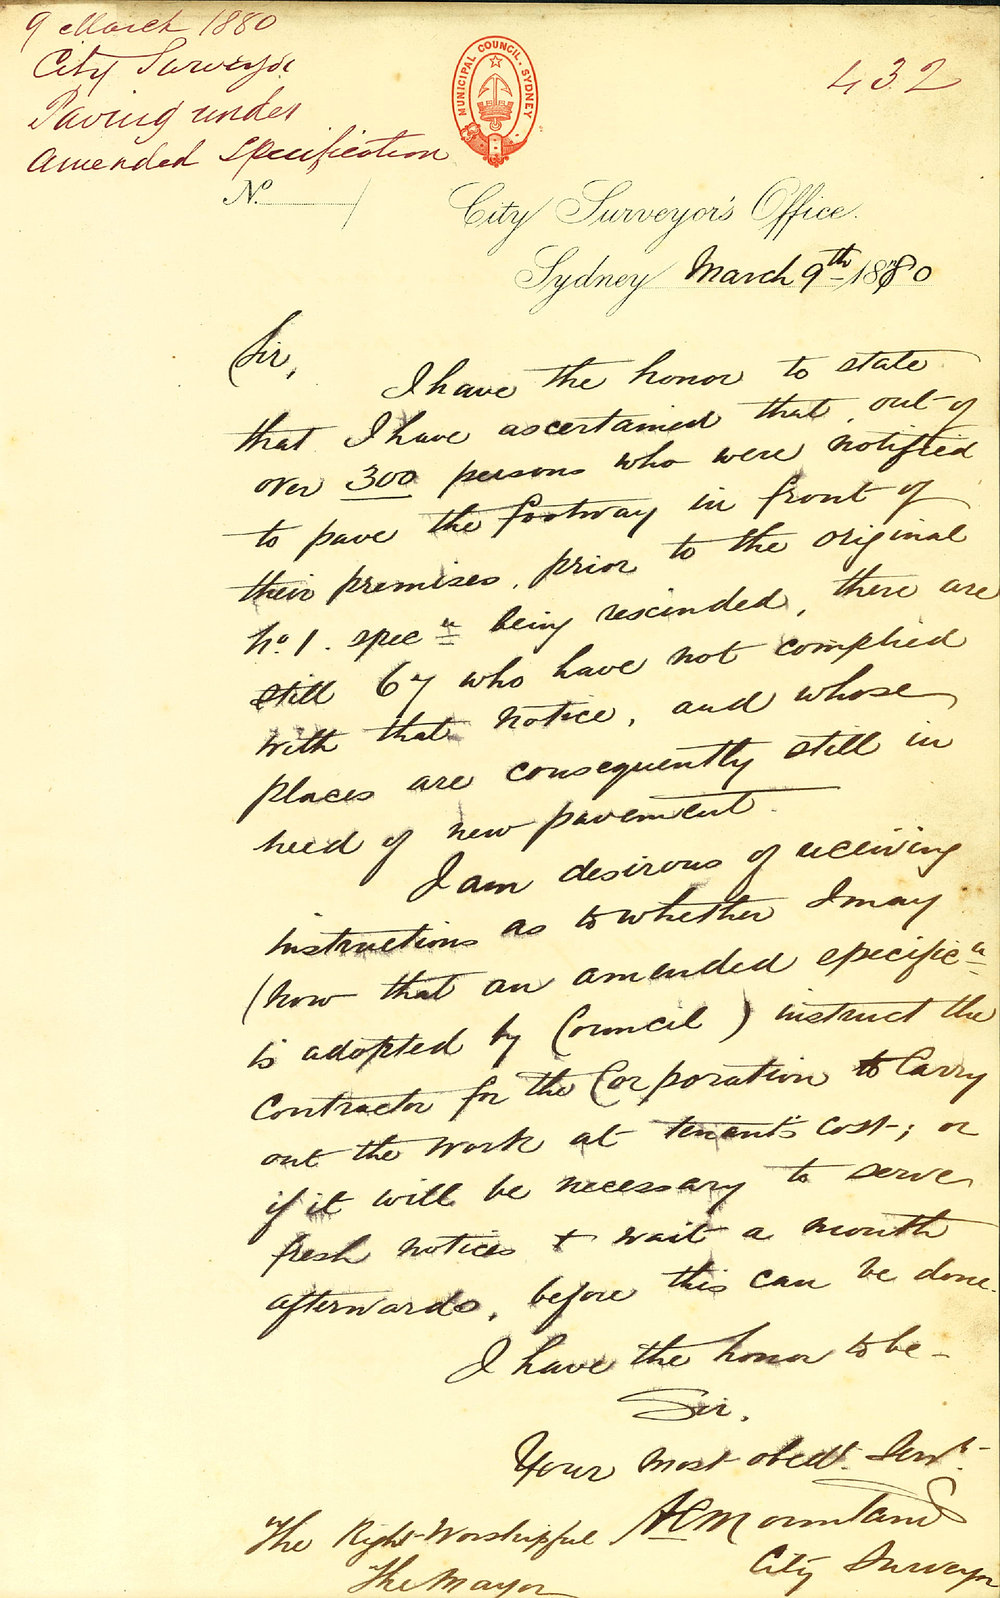 9 March 1880
City Surveyor
Paving under
Amended Specification
432
MUNICIPAL COUNCIL. SYDNEY
No.
City Surveyor's Office.
Sydney March 9th 1880
Sir,
I have the honor to state
that I have ascertained that, out of
over 300 persons who were notified
to pave the footway in front of
their premises, prior to the original
No. 1. specn being rescinded, there are
still 67 who have not complied
with that notice, and whose
places are consequently still in
need of new pavement.
I am desirous of receiving
instructions as to whether I may
(now that an amended specificn
is adopted by Council) instruct the
Contractor for the Corporation to carry
out the work at tenant's cost; or
if it will be necessary to serve
fresh notices & wait a month
afterwards, before this can be done.
I have the honor to be -
Sir.
Your most obedt. Servt.
A C Mountain
City Surveyor
The Right Worshipful
The Mayor